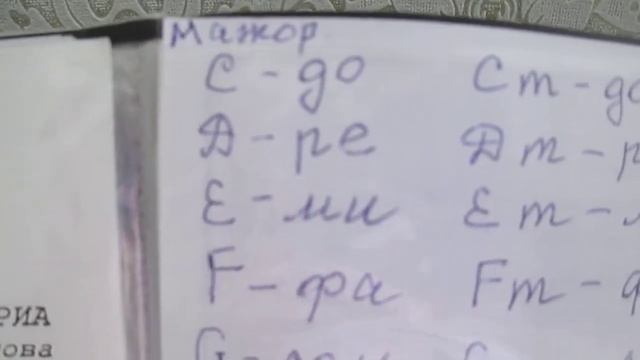 Мажор
C - до Cm - до
D - ре Dm - р
E - ми Em -
F - фа Fm - ф
G -
РИА
ова